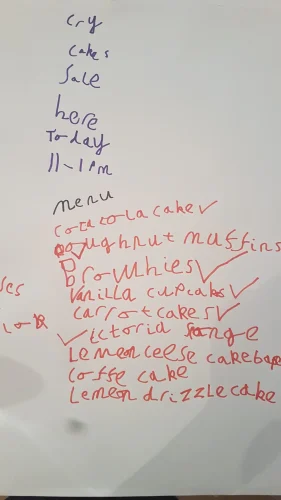 cry
cakes
sale
here
Today
11-1pm
menu
coca cola cake ✓
doughnut muffins
browhies ✓
vanilla cupcakes ✓
carrot cakes ✓
✓ictorid sange
Lemon ceese cake
coffe cake
Lemon drizzle cake